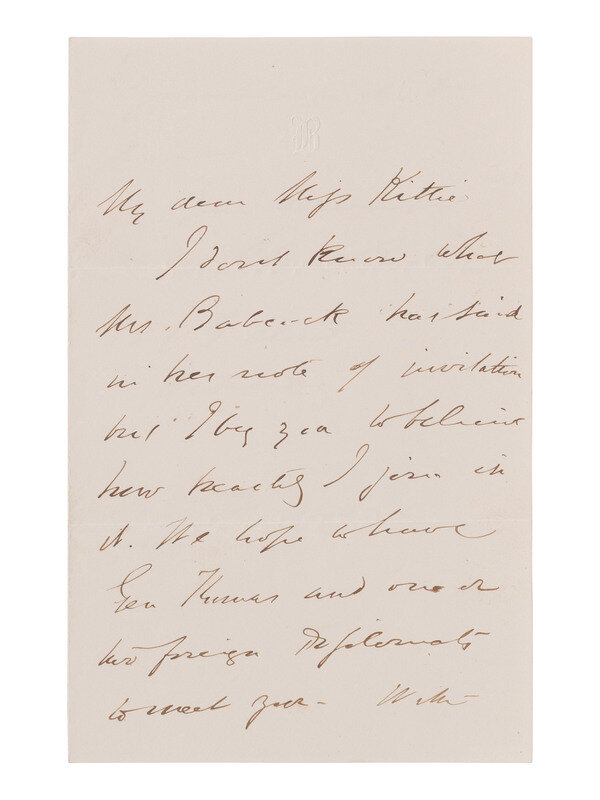 My dear Miss Kittie
I don't know what
Mrs. Babcock has said
in her note of invitation
but I beg you to believe
how heartily I join in
it. We hope to have
Gen Thomas and one or
two foreign Diplomats
to meet you - With